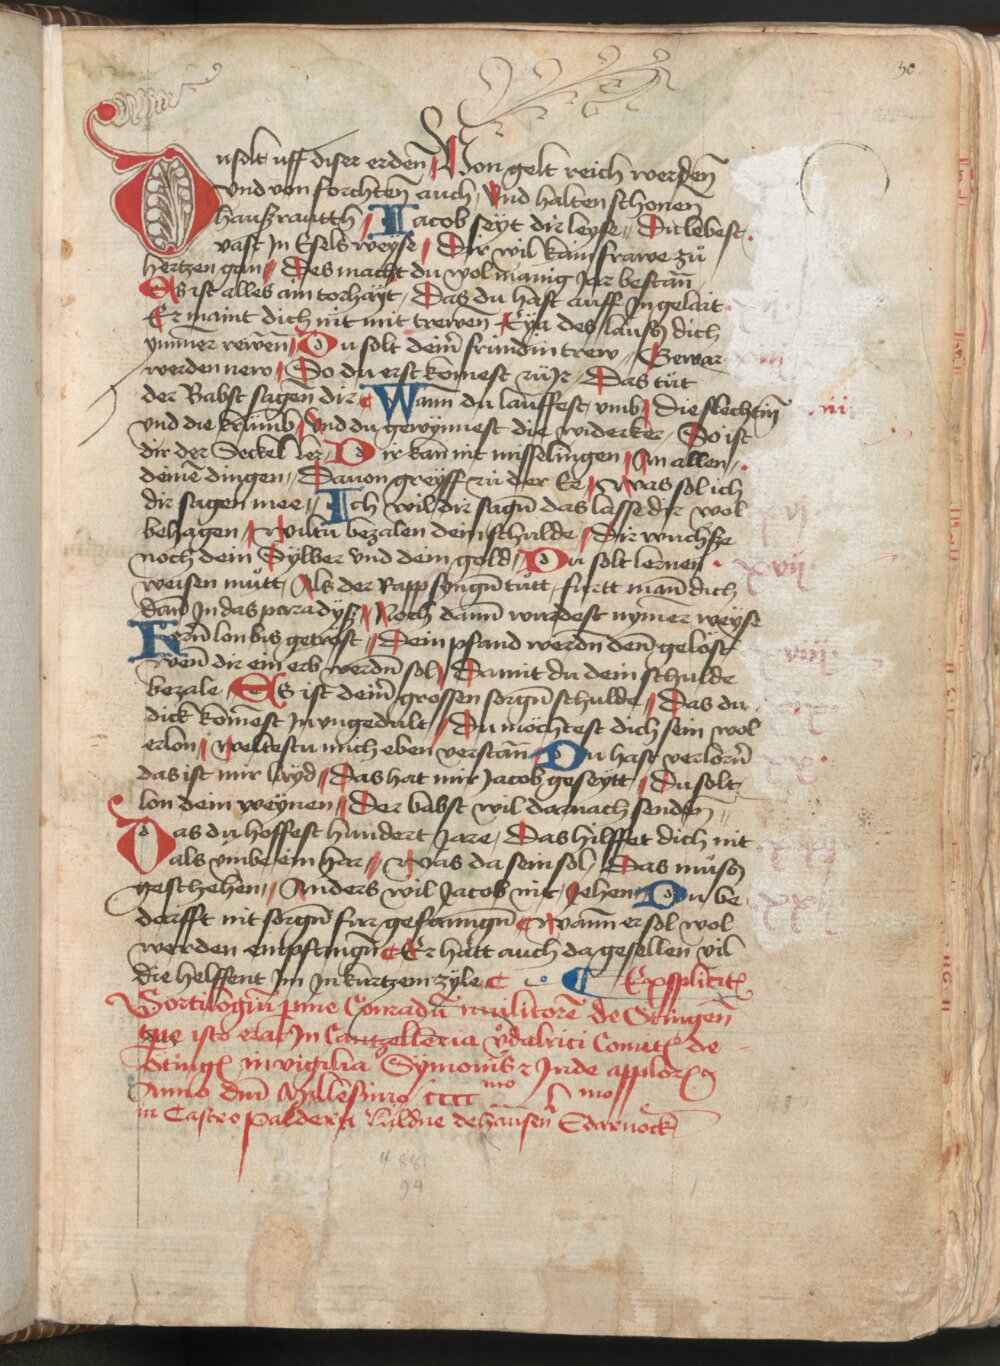 50
Du solt uff diser erden Von gelt reich werden
Vnd von forchten auch Vnd halten schonen
haußrautth Jacob seyt dir leyse Du lebest
vast In Esels weyse Dir wil kain frawe zu
hertzen gan Des macht du wol manig Jar bestan
Es ist alles ain torhayt Das du hast auff In gelait
Er maint dich nit mit trewen Eya des lausz dich
ymmer rewen Du solt deim frundin trew Gewar
werden new So du erst komest zu Ir Das tut
der Babst sagen dir Wann du lauffest vmb Die slechtin
vnd die krumb Vnd du gewynnest die widerker So ist
dir der Seckel ler Dir kan nit misselingen An allen
deine dingen Dauon greyff zu der Ee Was sol ich
dir sagen mee Ich wil dir sagn das lasse dir wol
behagen Wiltu bezalen dein schulde Dir wuchsze
noch dein Sylber vnd dein gold Du solt lernen
weisen mutt Als der Rapp syngn tutt furtt man dich
dan In das paradysz Noch dann wurdest nymer weyse
Kern lon bis getrost Dein pfand werdn den gelost
Wen dir ein erb werdn sol Damit du dein schulde
bezale Es ist deinr grossen sorgn schulde Das du
dick komest In vngedult Du mochtest dich sein wol
erlon Weltestu mich eben verstan Du hast verlorn
das ist mir layd Das hat mir Jacob geseytt Du solt
lon dein weynen Der babst wil darnach senden
Das du hoffest hundert Jare Das hilffet dich nit
als vmbe ein har Was da sein sol Das musz
geschehen Anders wil Jacob nit Jehen Du be
dorfft nit sorgn fur gefanngn Wann er sol wol
werden empfangn Er hatt auch da gesellen vil
die helffent Im In kurtzem zyle Expplicit
Sortilogiu p me Conradu militore de Ottingen
In Cantzelleria Vdalrici Comit de
Oting in vigilia Symonis z Jude applor
Anno dni Millesimo cccc mo L mo
in Castro paldern
488
94